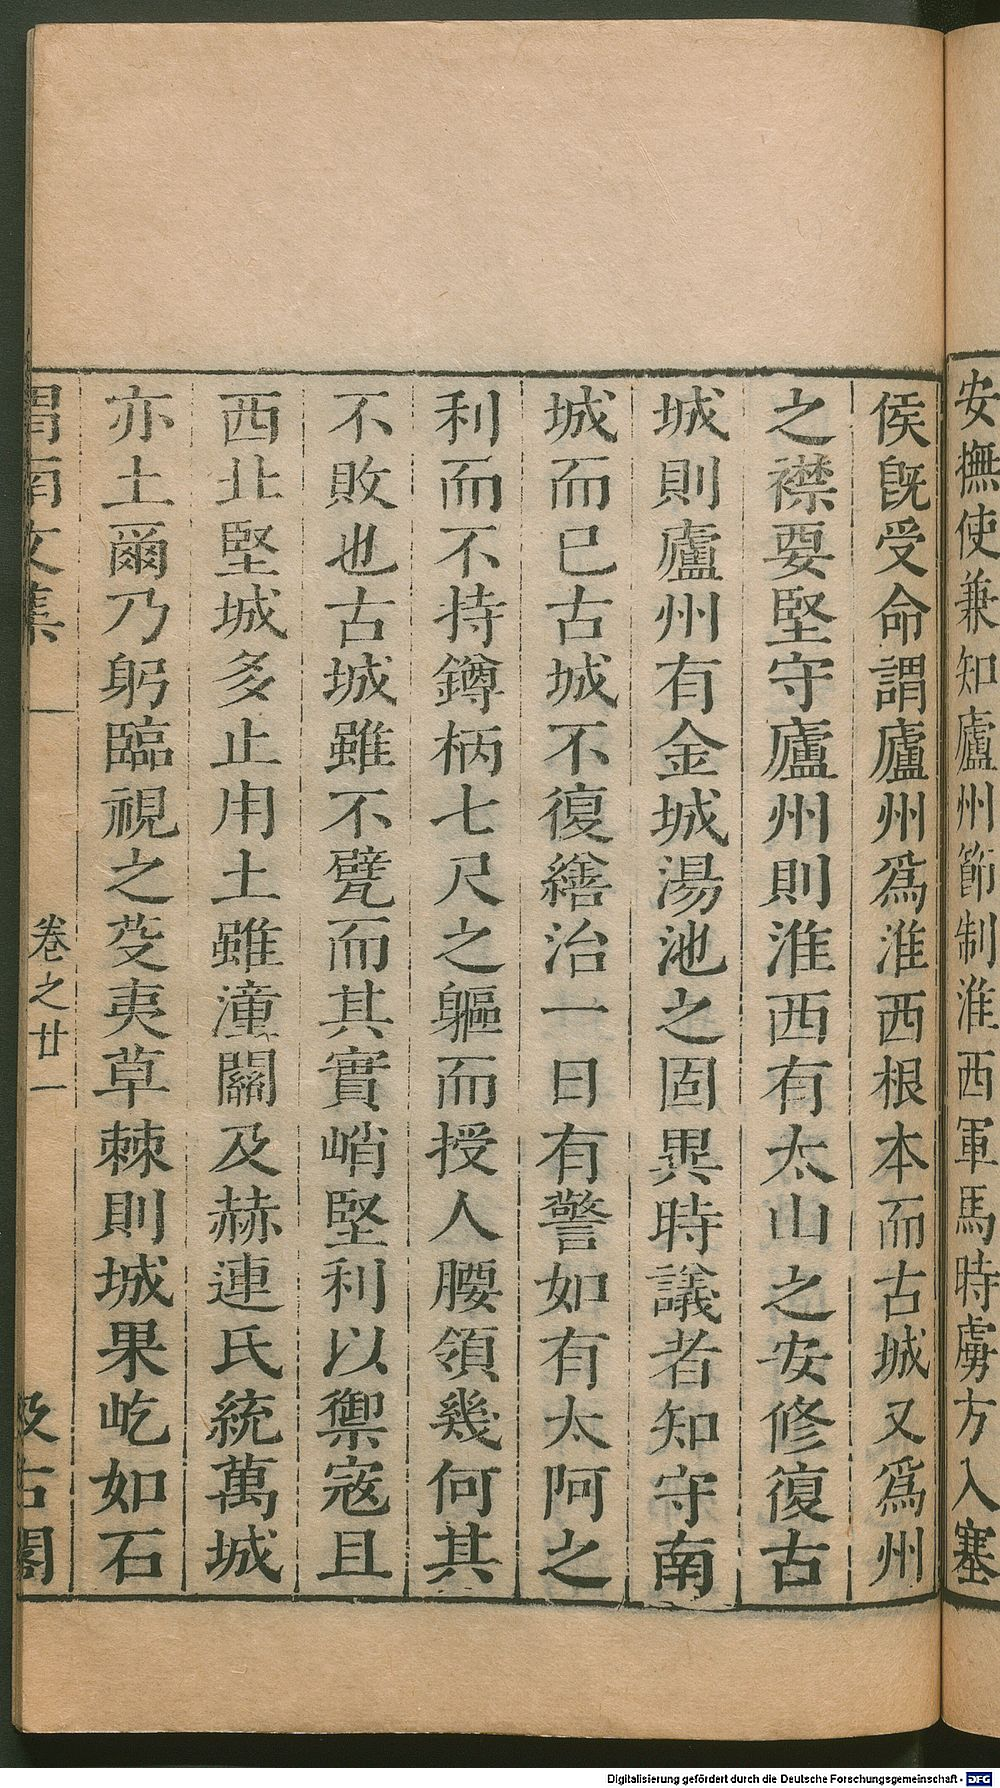 安撫使兼知廬州節制淮西軍馬時虜方入塞
侯旣受命謂廬州爲淮西根本而古城又爲州
之襟要堅守廬州則淮西有太山之安修復古
城則廬州有金城湯池之固異時議者知守南
城而已古城不復繕治一日有警如有太阿之
利而不持鐏柄七尺之軀而授人腰領幾何其
不敗也古城雖不甓而其實峭堅利以禦寇且
西北堅城多止用土雖潼關及赫連氏統萬城
亦土爾乃躬臨視之芟夷草棘則城果屹如石
渭南文集
卷之廿一
汲古閣
Digitalisierung gefördert durch die Deutsche Forschungsgemeinschaft - DFG